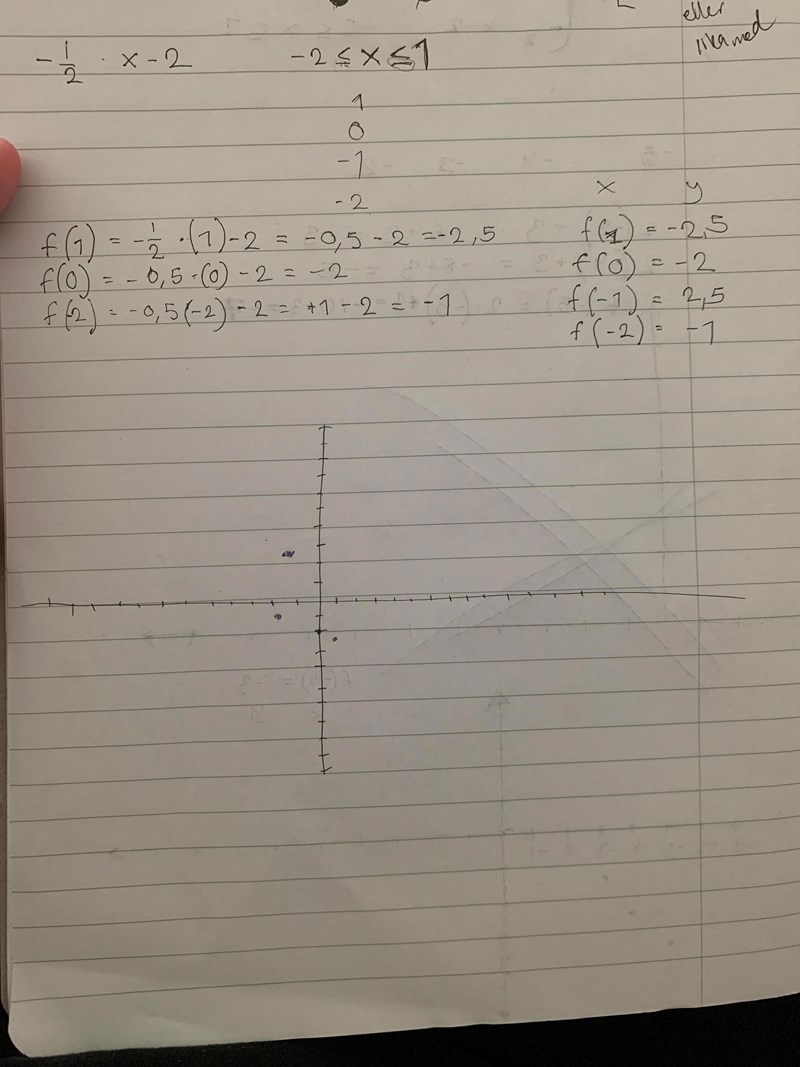 eller
likamed
-1/2 · x - 2    -2 ≤ x ≤ 1
1
0
-1
-2
x    y
f(1) = -1/2 · (1) - 2 = -0,5 - 2 = -2,5    f(1) = -2,5
f(0) = -0,5 · (0) - 2 = -2    f(0) = -2
f(-2) = -0,5(-2) - 2 = +1 - 2 = -1    f(-1) = 2,5
f(-2) = -1